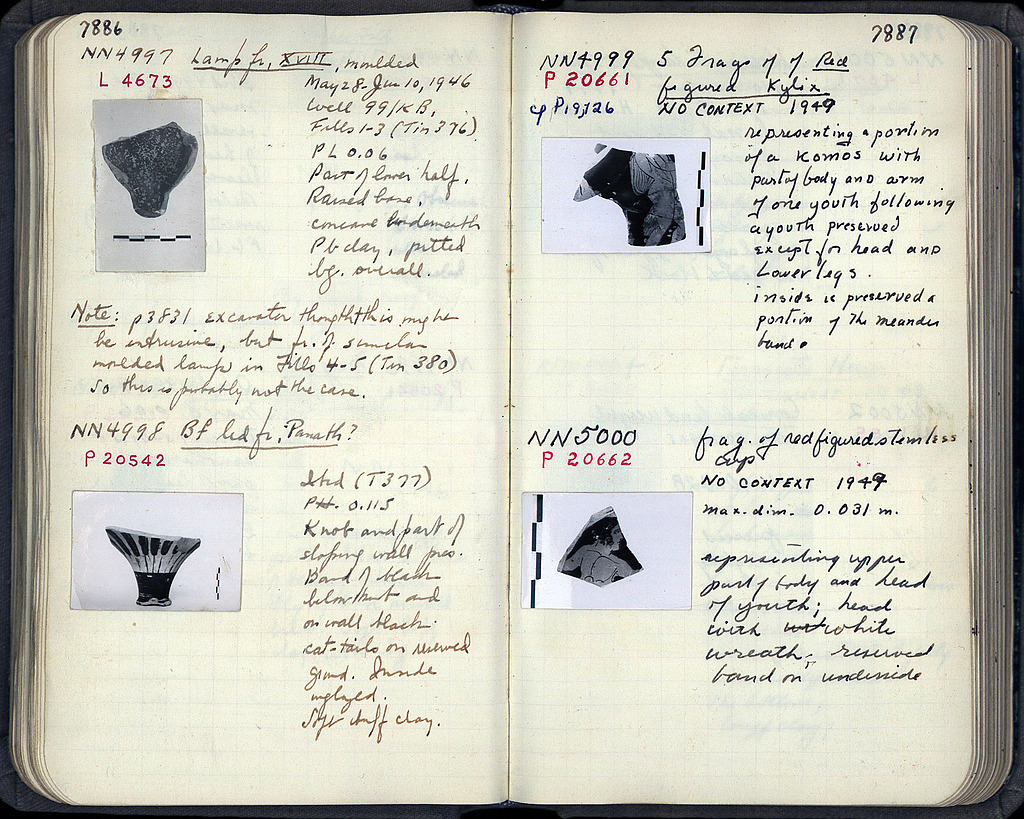 7886
NN4997 Lamp fr, XVIII, moulded
L 4673
May 28-Jun 10, 1946
Well 99/KB,
Fills 1-3 (Tin 376)
PL 0.06
Part of lower half.
Raised base,
concave underneath
Pb clay, pitted
bg. overall.
Note: p3831 excavator thought this might
be intrusive, but fr. of similar
moulded lamp in Fills 4-5 (Tin 380)
so this is probably not the case.
NN4998 Bf lid fr, Panath?
P 20542
Ibid (T377)
PH. 0.115
Knob and part of
sloping wall pres.
Band of black
below knob and
on wall black
cat-tails on reserved
ground. Inside
unglazed.
Soft buff clay.
7887
NN4999 5 Frags of Red
P 20661 figured Kylix
cf P19,126 NO CONTEXT 1949
representing a portion
of a Komos with
part of body AND arm
of one youth following
a youth preserved
except for head AND
Lower legs.
inside is preserved a
portion of The meander
band.
NN5000 frag. of red figured stemless
P 20662 cup
NO CONTEXT 1949
max. dim. 0.031 m.
representing upper
part of body and head
of youth; head
with white
wreath; reserved
band on underside